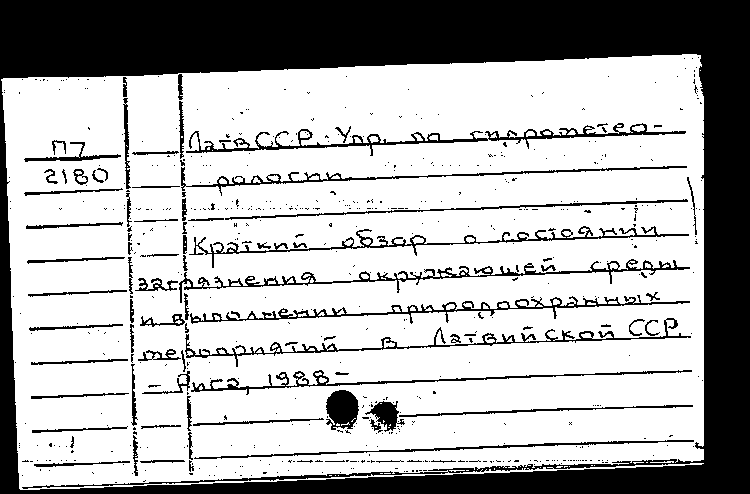 П7
2180
ЛатвССР. Упр. по гидрометео-
рологии.
Краткий обзор о состоянии
загрязнения окружающей среды
и выполнении природоохранных
мероприятий в Латвийской ССР.
- Рига, 1988-